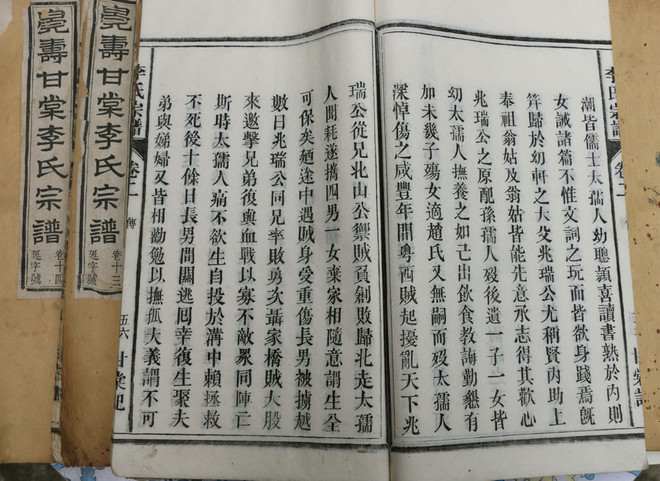 李氏宗譜 卷二
潮皆儒士太孺人幼聰潁喜讀書熟於內則
女誡諸篇不惟文詞之玩而皆欲身踐焉旣
笄歸於幼軒之大父兆瑞公尤稱賢內助上
奉祖翁姑及翁姑皆能先意承志得其歡心
兆瑞公之原配孫孺人歿後遺一子一女皆
幼太孺人撫養之如己出飲食教誨勤懇有
加未幾子殤女適趙氏又無嗣而歿太孺人
深悼傷之咸豐年間粵西賊起擾亂天下兆
瑞公從兄北山公禦賊負創敗歸北走太孺
人聞耗遂攜四男一女棄家相隨意謂生全
可保矣廼途中遇賊身受重傷長男被擄越
數日兆瑞公同兄率敗勇次聶家橋賊大股
來邀擊兄弟復輿血戰以寡不敵衆同陣亡
斯時太孺人痛不欲生自投於溝中賴拯救
不死後十餘日長男間關逃囘幸復生聚夫
弟與娣婦又皆相勸勉以撫孤大義謂不可
李氏宗譜 卷二 傳 五六
壽甘棠李氏宗譜
卷十三
字號
壽甘棠李氏宗譜
卷十四
字號